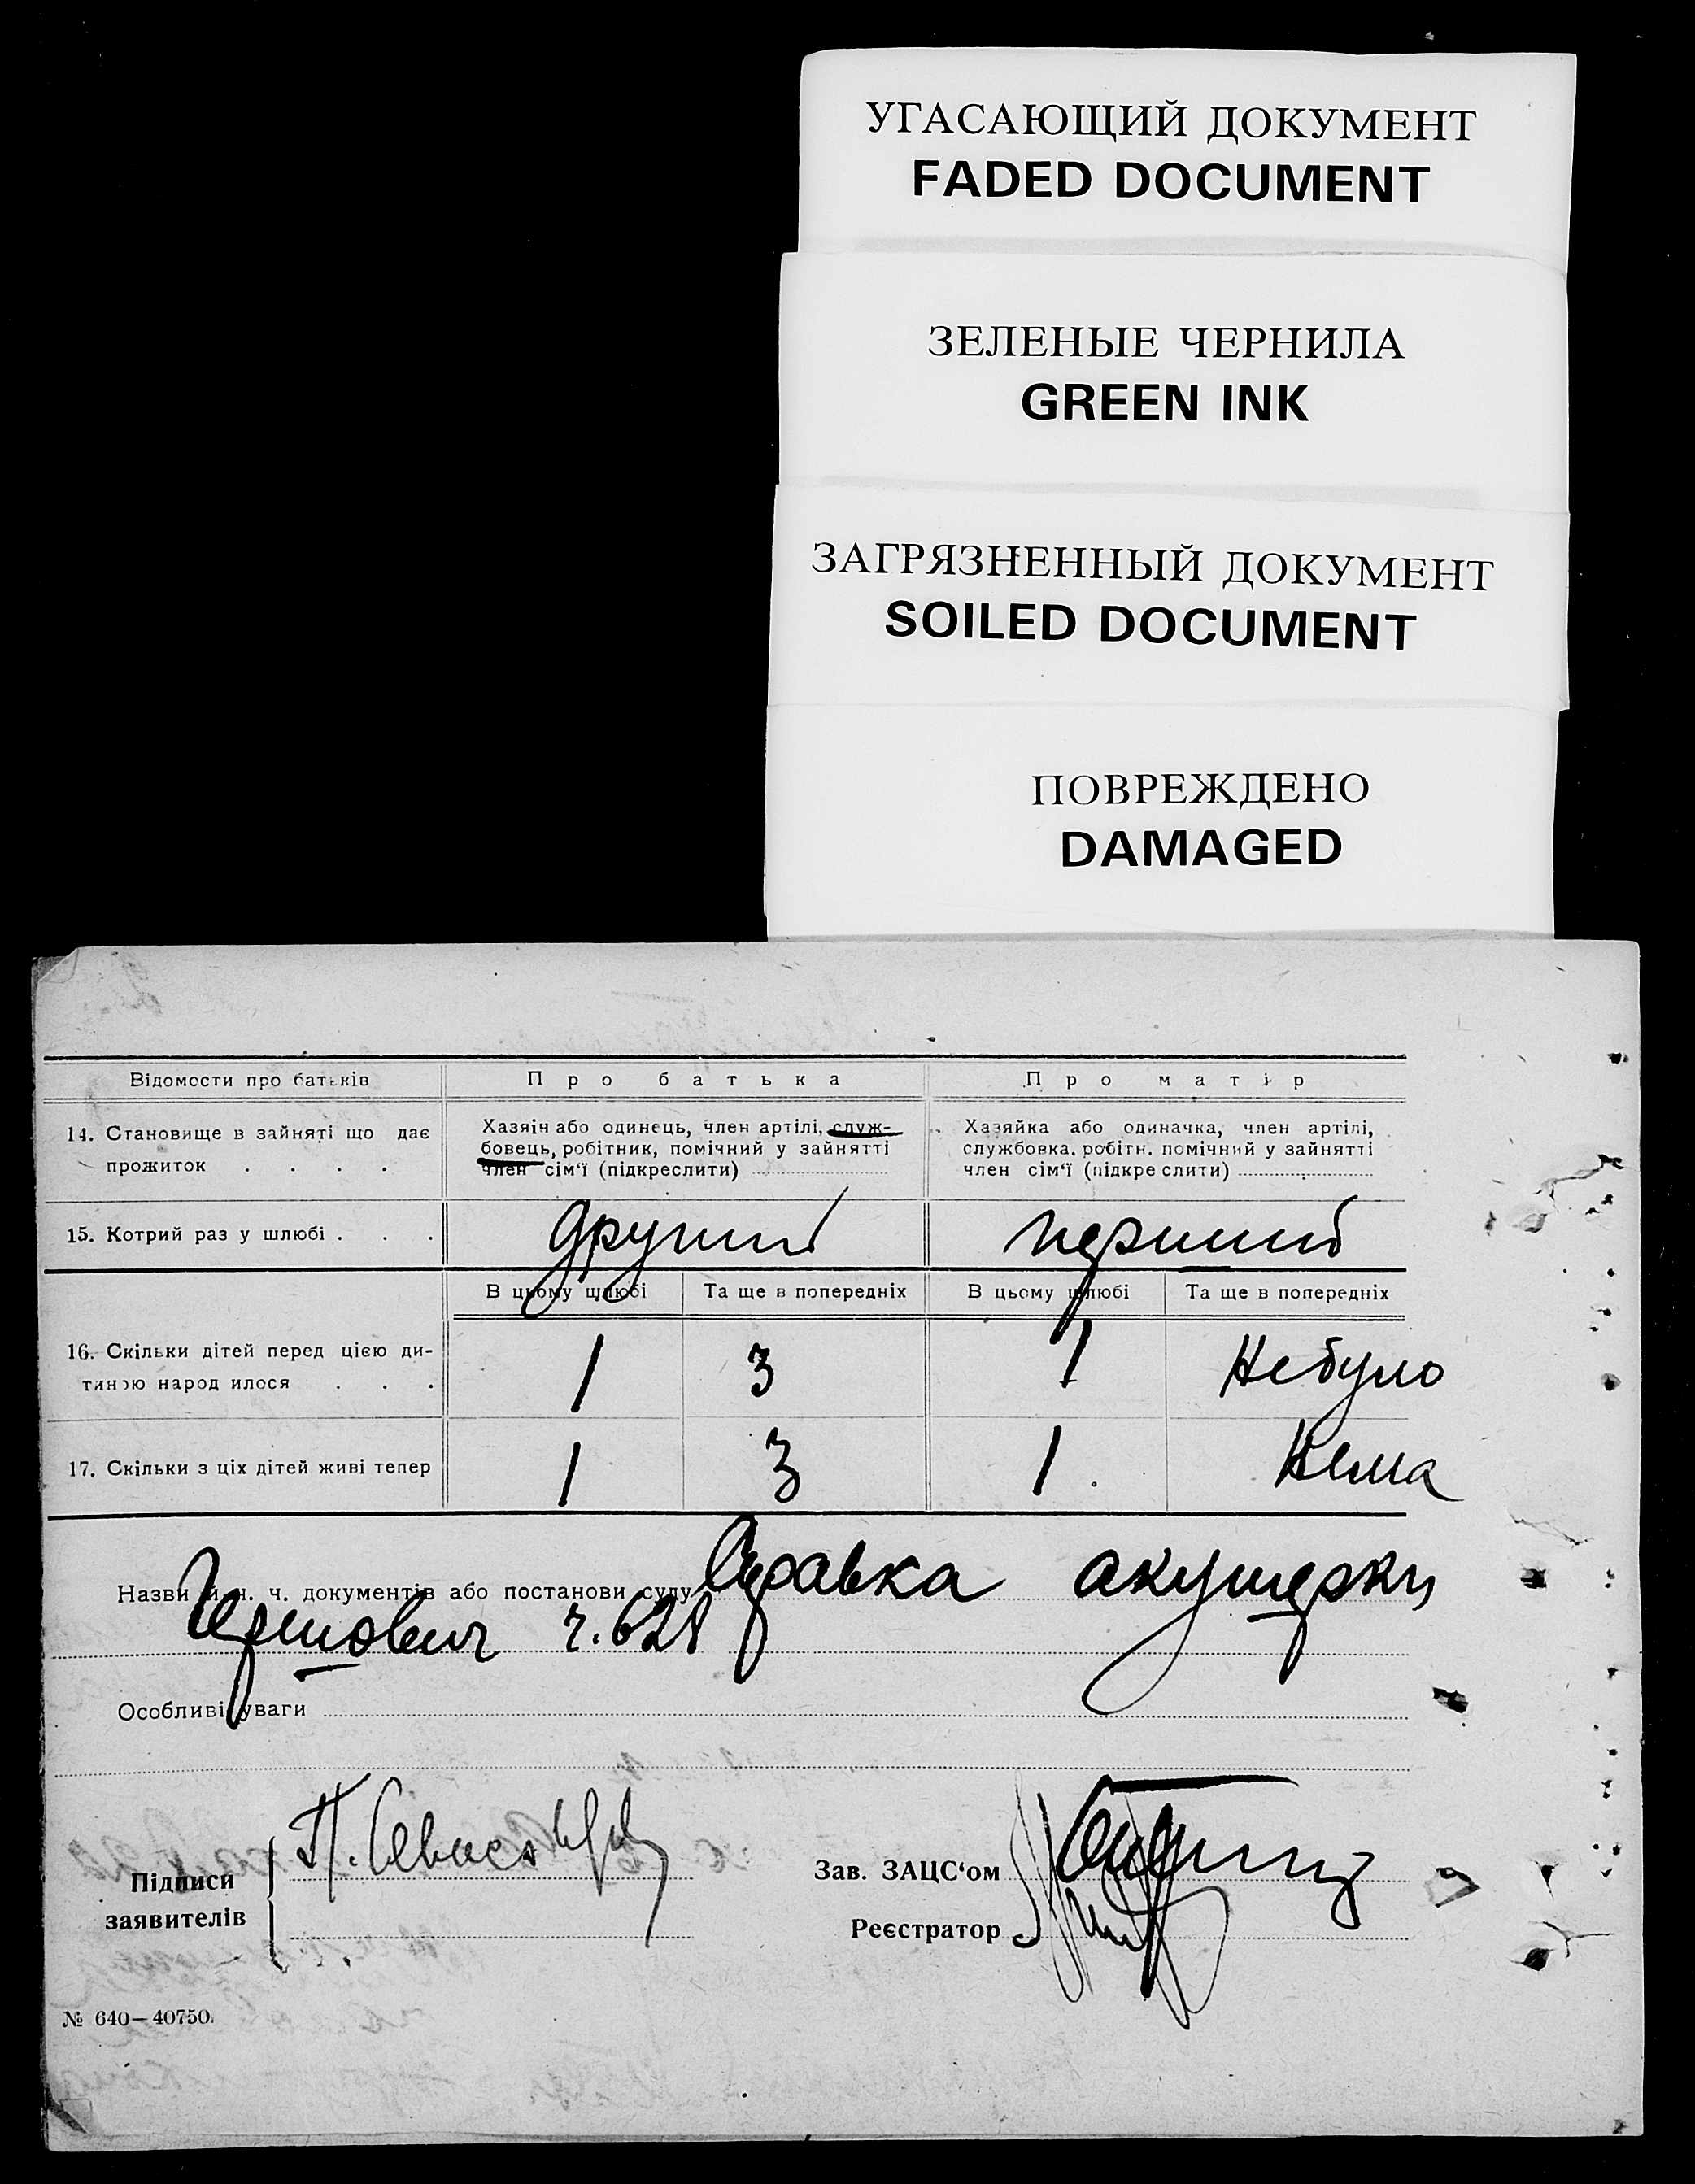 УГАСАЮЩИЙ ДОКУМЕНТ
FADED DOCUMENT
ЗЕЛЕНЫЕ ЧЕРНИЛА
GREEN INK
ЗАГРЯЗНЕННЫЙ ДОКУМЕНТ
SOILED DOCUMENT
ПОВРЕЖДЕНО
DAMAGED
Відомости про батьків
Про батька
Про матір
14. Становище в зайняті що дає
прожиток . . . .
Хазяїн або одинець, член артілі, служ-
бовець, робітник, помічний у зайнятті
член сім'ї (підкреслити)
Хазяйка або одиначка, член артілі,
службовка, робітн. помічний у зайнятті
член сім'ї (підкреслити)
15. Котрий раз у шлюбі . . .
другий
перший
В цьому шлюбі
Та ще в попередніх
В цьому шлюбі
Та ще в попередніх
16. Скільки дітей перед цією ди-
тиною народилося . . .
1
3
1
Небуло
17. Скільки з ціх дітей живі тепер
1
3
1.
Нема
Назви й н. ч. документів або постанови суду Справка акушерки
ч. 628
Особливі уваги
Підписи
заявителів
П.
Зав. ЗАЦС'ом
Реєстратор
№ 640—40750.